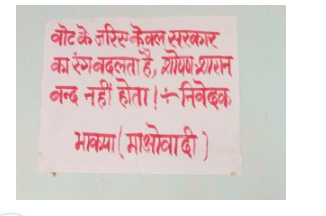 वोट के जरिए केवल सरकार
का रंग बदलता है, शोषण शासन
बन्द नहीं होता।÷निवेदक
भाकपा (माओवादी)